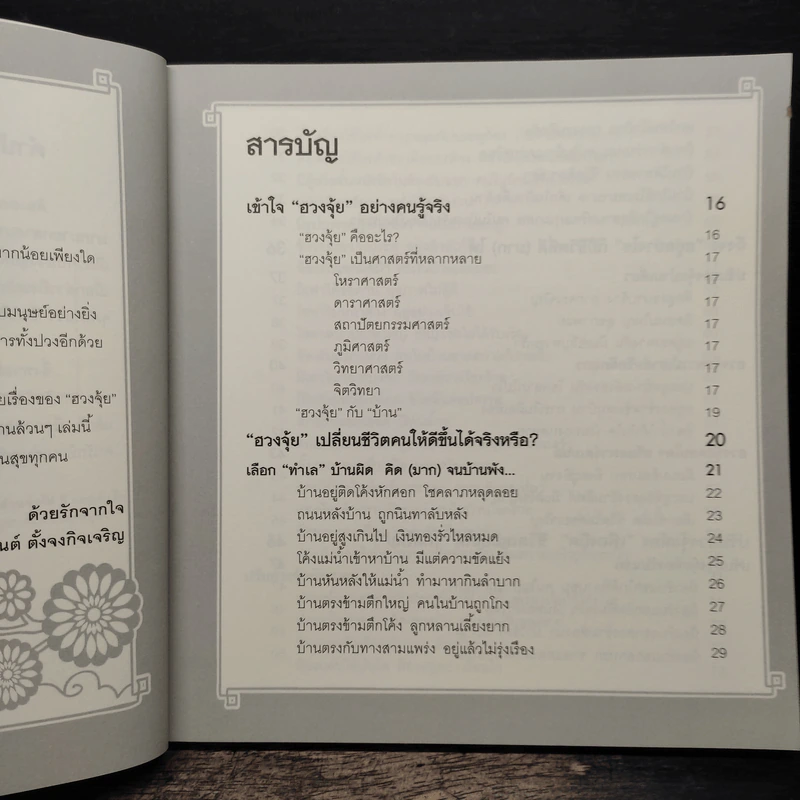 ากน้อยเพียงใด
บมนุษย์อย่างยิ่ง
ารทั้งปวงอีกด้วย
ยเรื่องของ “ฮวงจุ้ย”
านล้วนๆ เล่มนี้
นสุขทุกคน
ด้วยรักจากใจ
นต์ ตั้งจงกิจเจริญ
สารบัญ
เข้าใจ “ฮวงจุ้ย” อย่างคนรู้จริง 16
“ฮวงจุ้ย” คืออะไร? 16
“ฮวงจุ้ย” เป็นศาสตร์ที่หลากหลาย 17
โหราศาสตร์ 17
ดาราศาสตร์ 17
สถาปัตยกรรมศาสตร์ 17
ภูมิศาสตร์ 17
วิทยาศาสตร์ 17
จิตวิทยา 17
“ฮวงจุ้ย” กับ “บ้าน” 19
“ฮวงจุ้ย” เปลี่ยนชีวิตคนให้ดีขึ้นได้จริงหรือ? 20
เลือก “ทำเล” บ้านผิด คิด (มาก) จนบ้านพัง... 21
บ้านอยู่ติดโค้งหักศอก โชคลาภหลุดลอย 22
ถนนหลังบ้าน ถูกนินทาลับหลัง 23
บ้านอยู่สูงเกินไป เงินทองรั่วไหลหมด 24
โค้งแม่น้ำเข้าหาบ้าน มีแต่ความขัดแย้ง 25
บ้านหันหลังให้แม่น้ำ ทำมาหากินลำบาก 26
บ้านตรงข้ามตึกใหญ่ คนในบ้านถูกโกง 27
บ้านตรงข้ามตึกโค้ง ลูกหลานเลี้ยงยาก 28
บ้านตรงกับทางสามแพร่ง อยู่แล้วไม่รุ่งเรือง 29